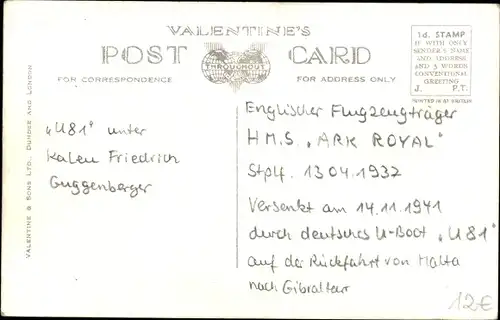 VALENTINE'S
POST CARD
THROUGHOUT
FOR CORRESPONDENCE
FOR ADDRESS ONLY
1d. STAMP
IF WITH ONLY
SENDER'S NAME
AND ADDRESS
AND 5 WORDS
CONVENTIONAL
GREETING
J. P.T.
PRINTED IN GT. BRITAIN
VALENTINE & SONS LTD., DUNDEE AND LONDON
„U81" unter
Kaleu Friedrich
Guggenberger
Englischer Flugzeugträger
H.M.S. „ARK ROYAL"
Stpl. 13 04. 1937
Versenkt am 14.11.1941
durch deutsches U-Boot „U81"
auf der Rückfahrt von Malta
nach Gibraltar
12€